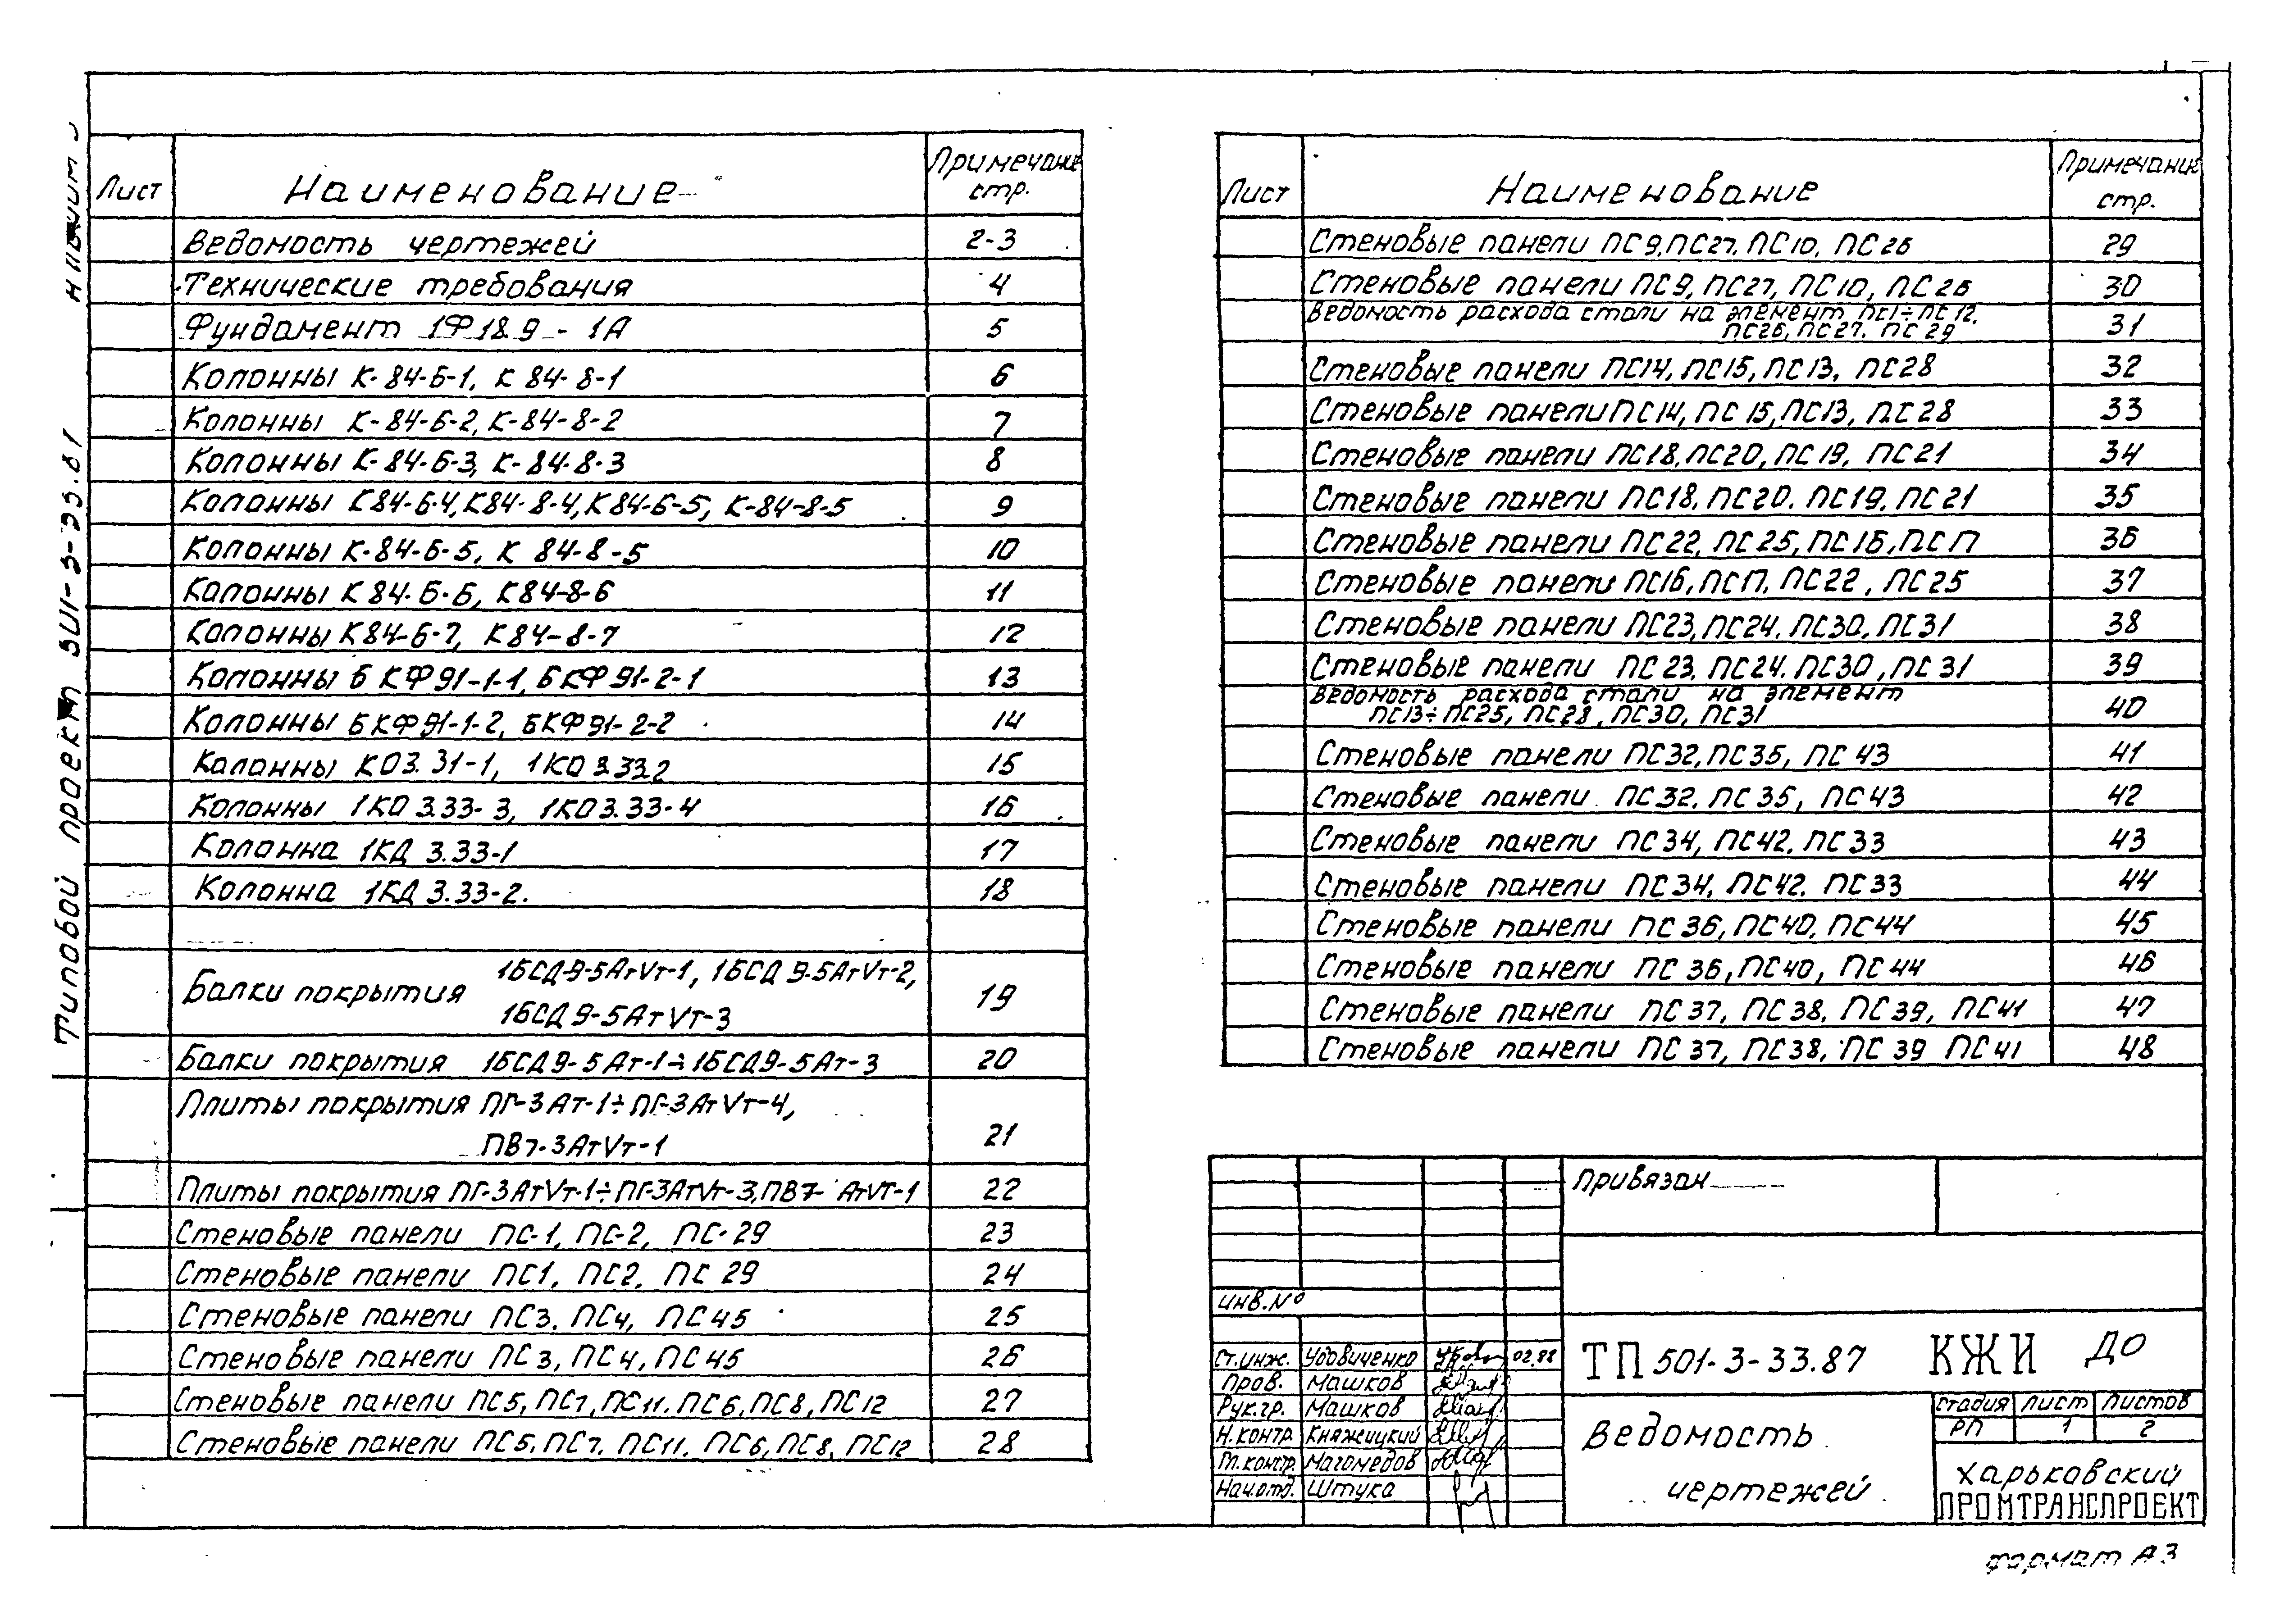 Типовой проект 501-3-33.87
Лист Наименование Примечание стр.
Ведомость чертежей 2-3
Технические требования 4
Фундамент 1Ф18.9-1А 5
Колонны К-84-6-1, К 84-8-1 6
Колонны К-84-6-2, К-84-8-2 7
Колонны К-84-6-3, К-84-8-3 8
Колонны К84-6-4, К84-8-4, К84-6-5, К-84-8-5 9
Колонны К-84-6-5, К 84-8-5 10
Колонны К84-6-6, К84-8-6 11
Колонны К84-6-7, К84-8-7 12
Колонны 6КФ91-1-1, 6КФ91-2-1 13
Колонны 6КФ91-1-2, 6КФ91-2-2 14
Колонны КО3.31-1, 1КО3.33.2 15
Колонны 1КО3.33-3, 1КО3.33-4 16
Колонна 1КД 3.33-1 17
Колонна 1КД 3.33-2. 18
Балки покрытия 1БСД-9-5АтVт-1, 1БСД9-5АтVт-2,
1БСД9-5АтVт-3 19
Балки покрытия 1БСД9-5Ат-1÷1БСД9-5Ат-3 20
Плиты покрытия ПГ-3Ат-1÷ПГ-3АтVт-4,
ПВ7-3АтVт-1 21
Плиты покрытия ПГ-3АтVт-1÷ПГ-3АтVт-3, ПВ7-АтVт-1 22
Стеновые панели ПС-1, ПС-2, ПС-29 23
Стеновые панели ПС1, ПС2, ПС 29 24
Стеновые панели ПС3, ПС4, ПС45 25
Стеновые панели ПС3, ПС4, ПС45 26
Стеновые панели ПС5, ПС7, ПС11, ПС6, ПС8, ПС12 27
Стеновые панели ПС5, ПС7, ПС11, ПС6, ПС8, ПС12 28
Лист Наименование Примечание стр.
Стеновые панели ПС9, ПС27, ПС10, ПС26 29
Стеновые панели ПС9, ПС27, ПС10, ПС26 30
Ведомость расхода стали на элемент ПС1÷ПС12,
ПС26, ПС27, ПС29 31
Стеновые панели ПС14, ПС15, ПС13, ПС28 32
Стеновые панели ПС14, ПС15, ПС13, ПС28 33
Стеновые панели ПС18, ПС20, ПС19, ПС21 34
Стеновые панели ПС18, ПС20, ПС19, ПС21 35
Стеновые панели ПС22, ПС25, ПС16, ПС17 36
Стеновые панели ПС16, ПС17, ПС22, ПС25 37
Стеновые панели ПС23, ПС24, ПС30, ПС31 38
Стеновые панели ПС23, ПС24, ПС30, ПС31 39
Ведомость расхода стали на элемент
ПС13÷ПС25, ПС28, ПС30, ПС31 40
Стеновые панели ПС32, ПС35, ПС43 41
Стеновые панели ПС32, ПС35, ПС43 42
Стеновые панели ПС34, ПС42, ПС33 43
Стеновые панели ПС34, ПС42, ПС33 44
Стеновые панели ПС36, ПС40, ПС44 45
Стеновые панели ПС36, ПС40, ПС44 46
Стеновые панели ПС37, ПС38, ПС39, ПС41 47
Стеновые панели ПС37, ПС38, ПС39 ПС41 48
Привязан
Инв.№
Ст.инж. Удовиченко 02.88
Пров. Машков
Рук.гр. Машков
Н.контр. Княжицкий
Гл.констр. Магомедов
Нач.отд. Штука
ТП 501-3-33.87 КЖИ ДО
Ведомость
чертежей
Стадия Лист Листов
РП 1 2
Харьковский
ПРОМТРАНСПРОЕКТ
Формат А3